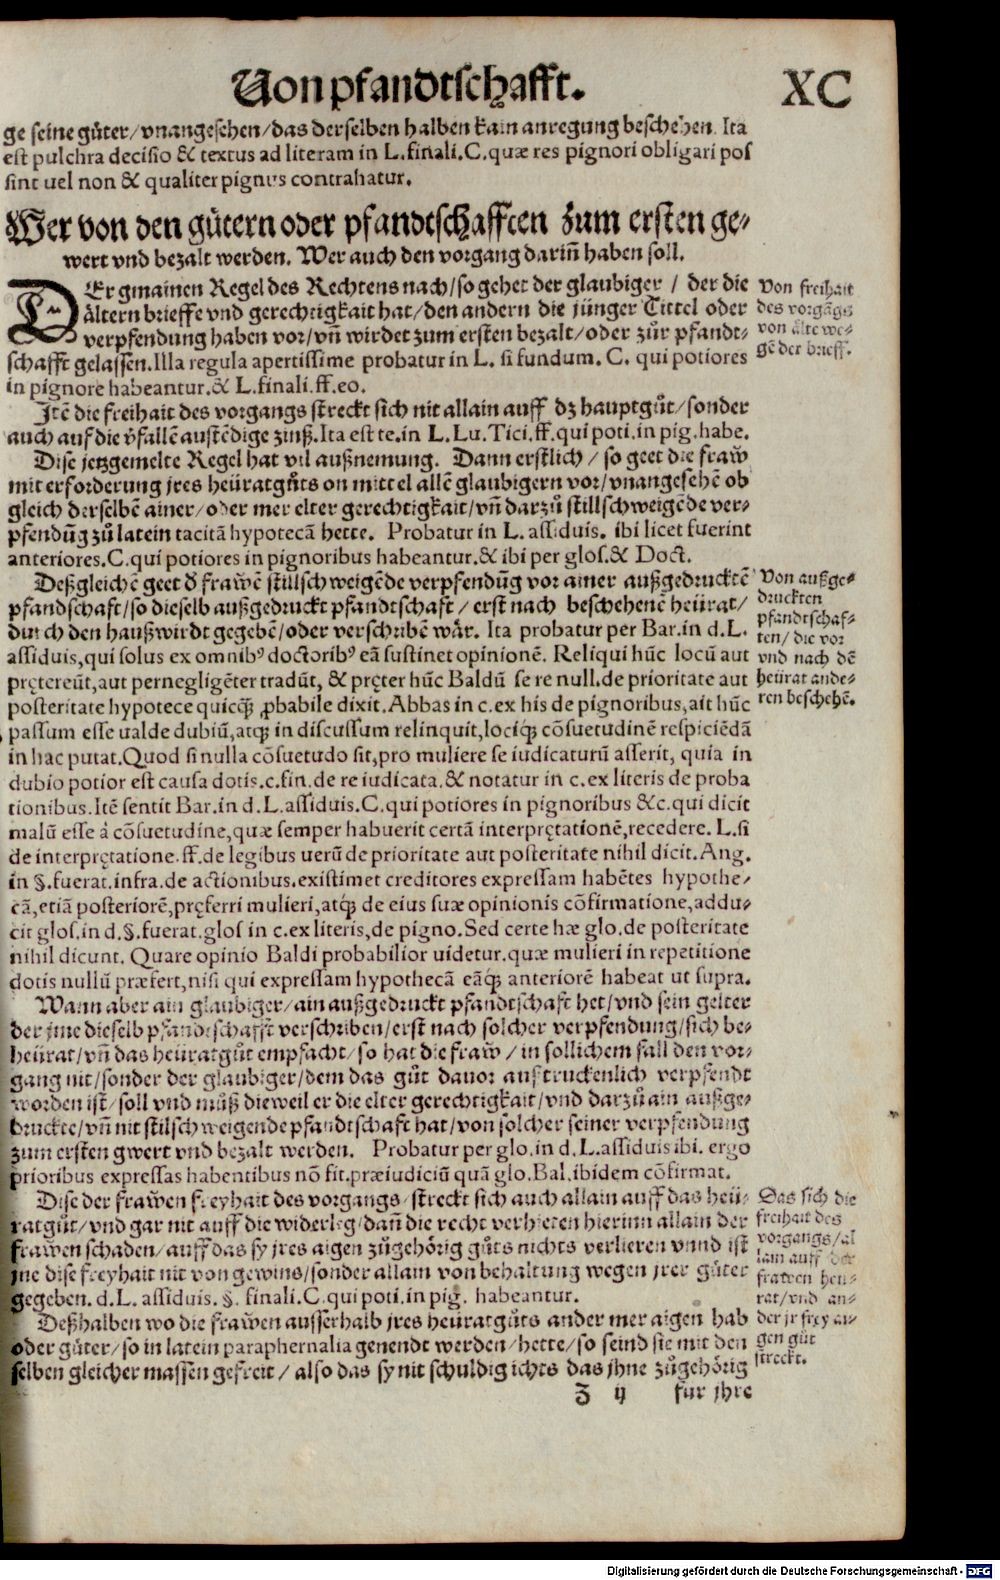 Von pfandtschafft. XC
ge seine gůter/vnangesehen/das derselben halben kain anregung beschehen. Ita
est pulchra decisio & textus ad literam in L.finali.C.quæ res pignori obligari pos
sint uel non & qualiter pignus contrahatur.
Wer von den gůtern oder pfandtschafften zum ersten ge⸗
wert vnd bezalt werden. Wer auch den vorgang darin̄ haben soll.
DEr gmainen Regel des Rechtens nach/so gehet der glaubiger / der die
ältern brieffe vnd gerechtigkait hat/den andern die jünger Tittel oder
verpfendung haben vor/vn̄ wirdet zum ersten bezalt/oder zůr pfandt⸗
schafft gelassen.Illa regula apertissime probatur in L. si fundum. C. qui potiores
in pignore habeantur.& L.finali.ff.eo.
Von freihait
des vorgāgs
von älte we⸗
gē der brieff.
Jtē die freihait des vorgangs streckt sich nit allain auff dz hauptgůt/sonder
auch auf die v̄fallē austēdige zinß.Ita est te.in L.Lu.Tici.ff.qui poti.in pig.habe.
Dise jetzgemelte Regel hat vil außnemung. Dann erstlich / so geet die fraw
mit erforderung jres heüratgůts on mittel allē glaubigern vor/vnangesehē ob
gleich derselbē ainer/oder mer elter gerechtigkait/vn̄ darzů stillschweigēde ver⸗
pfendūg zů latein tacitā hypotecā hette. Probatur in L. assiduis. ibi licet fuerint
anteriores.C.qui potiores in pignoribus habeantur.& ibi per glos.& Doct.
Deßgleichē geet d̄ frawē stillschweigēde verpfendūg vor ainer außgedrucktē
pfandschaft/so dieselb außgedruckt pfandtschaft / erst nach beschehenē heürat/
durch den haußwirdt gegebē/oder verschribē wår. Ita probatur per Bar.in d.L.
assiduis,qui solus ex omnibꝰ doctoribꝰ eā sustinet opinionē. Reliqui hūc locū aut
prętereūt,aut pernegligēter tradūt, & pręter hūc Baldū se re null.de prioritate aut
posteritate hypotece quicq̄ꝫ ꝓbabile dixit.Abbas in c.ex his de pignoribus,ait hūc
passum esse ualde dubiū,atqꝫ in discussum relinquit,lociqꝫ cōsuetudinē respiciēdā
in hac putat.Quod si nulla cōsuetudo sit,pro muliere se iudicaturū asserit, quia in
dubio potior est causa dotis.c.fin.de re iudicata.& notatur in c.ex literis de proba
tionibus.Itē sentit Bar.in d.L.assiduis.C.qui potiores in pignoribus &c.qui dicit
malū esse à cōsuetudine,quæ semper habuerit certā interpretationē,recedere. L.si
de interpretatione.ff.de legibus uerū de prioritate aut posteritate nihil dicit.Ang.
in §.fuerat.infra.de actionibus.existimet creditores expressam habētes hypothe⸗
cā,etiā posteriorē,pręferri mulieri,atqꝫ de eius suæ opinionis cōfirmatione,addu⸗
cit glos.in d.§.fuerat.glos in c.ex literis,de pigno.Sed certe hæ glo.de posteritate
nihil dicunt. Quare opinio Baldi probabilior uidetur.quæ mulieri in repetitione
dotis nullū præfert,nisi qui expressam hypothecā eāqꝫ anteriorē habeat ut supra.
Von außge⸗
druckten
pfandtschaf⸗
ten/ die vor
vnd nach dē
heürat ande⸗
ren beschehē.
Wann aber ain glaubiger/ain außgedruckt pfandtschaft het/vnd sein gelter
der jme dieselb pfandtschafft verschriben/erst nach solcher verpfendung/sich be⸗
heürat/vn̄ das heüratgůt empfacht/so hat die fraw / in sollichem fall den vor⸗
gang nit/sonder der glaubiger/dem das gůt dauor austruckenlich verpfendt
worden ist/soll vnd můß dieweil er die elter gerechtigkait/vnd darzů ain außge⸗
druckte/vn̄ nit stilschweigende pfandtschaft hat/von solcher seiner verpfendung
zum ersten gwert vnd bezalt werden. Probatur per glo.in d.L.assiduis ibi. ergo
prioribus expressas habentibus nō fit.præiudiciū quā glo.Bal.ibidem cōfirmat.
Dise der frawen freyhait des vorgangs/streckt sich auch allain auff das heü⸗
ratgůt/vnd gar nit auff die widerleg/dan̄ die recht verhieten hierinn allain der
frawen schaden/auff das sy jres aigen zůgehörig gůts nichts verlieren vnnd ist
jne dise freyhait nit von gewins/sonder allain von behaltung wegen jrer gůter
gegeben. d.L. assiduis. §. finali.C.qui poti.in pig. habeantur.
Das sich die
freihait des
vorgangs/al
lain auff der
frawen heü⸗
rat/vnd an⸗
der jr frey ai⸗
gen gůt
streckt.
Deßhalben wo die frawen ausserhalb jres heüratgůts ander mer aigen hab
oder gůter/so in latein paraphernalia genendt werden/hette/so seind sie mit den
selben gleicher massen gefreit / also das sy nit schuldig ichts das jhne zůgehörig
Z ij für jhre
Digitalisierung gefördert durch die Deutsche Forschungsgemeinschaft - DFG